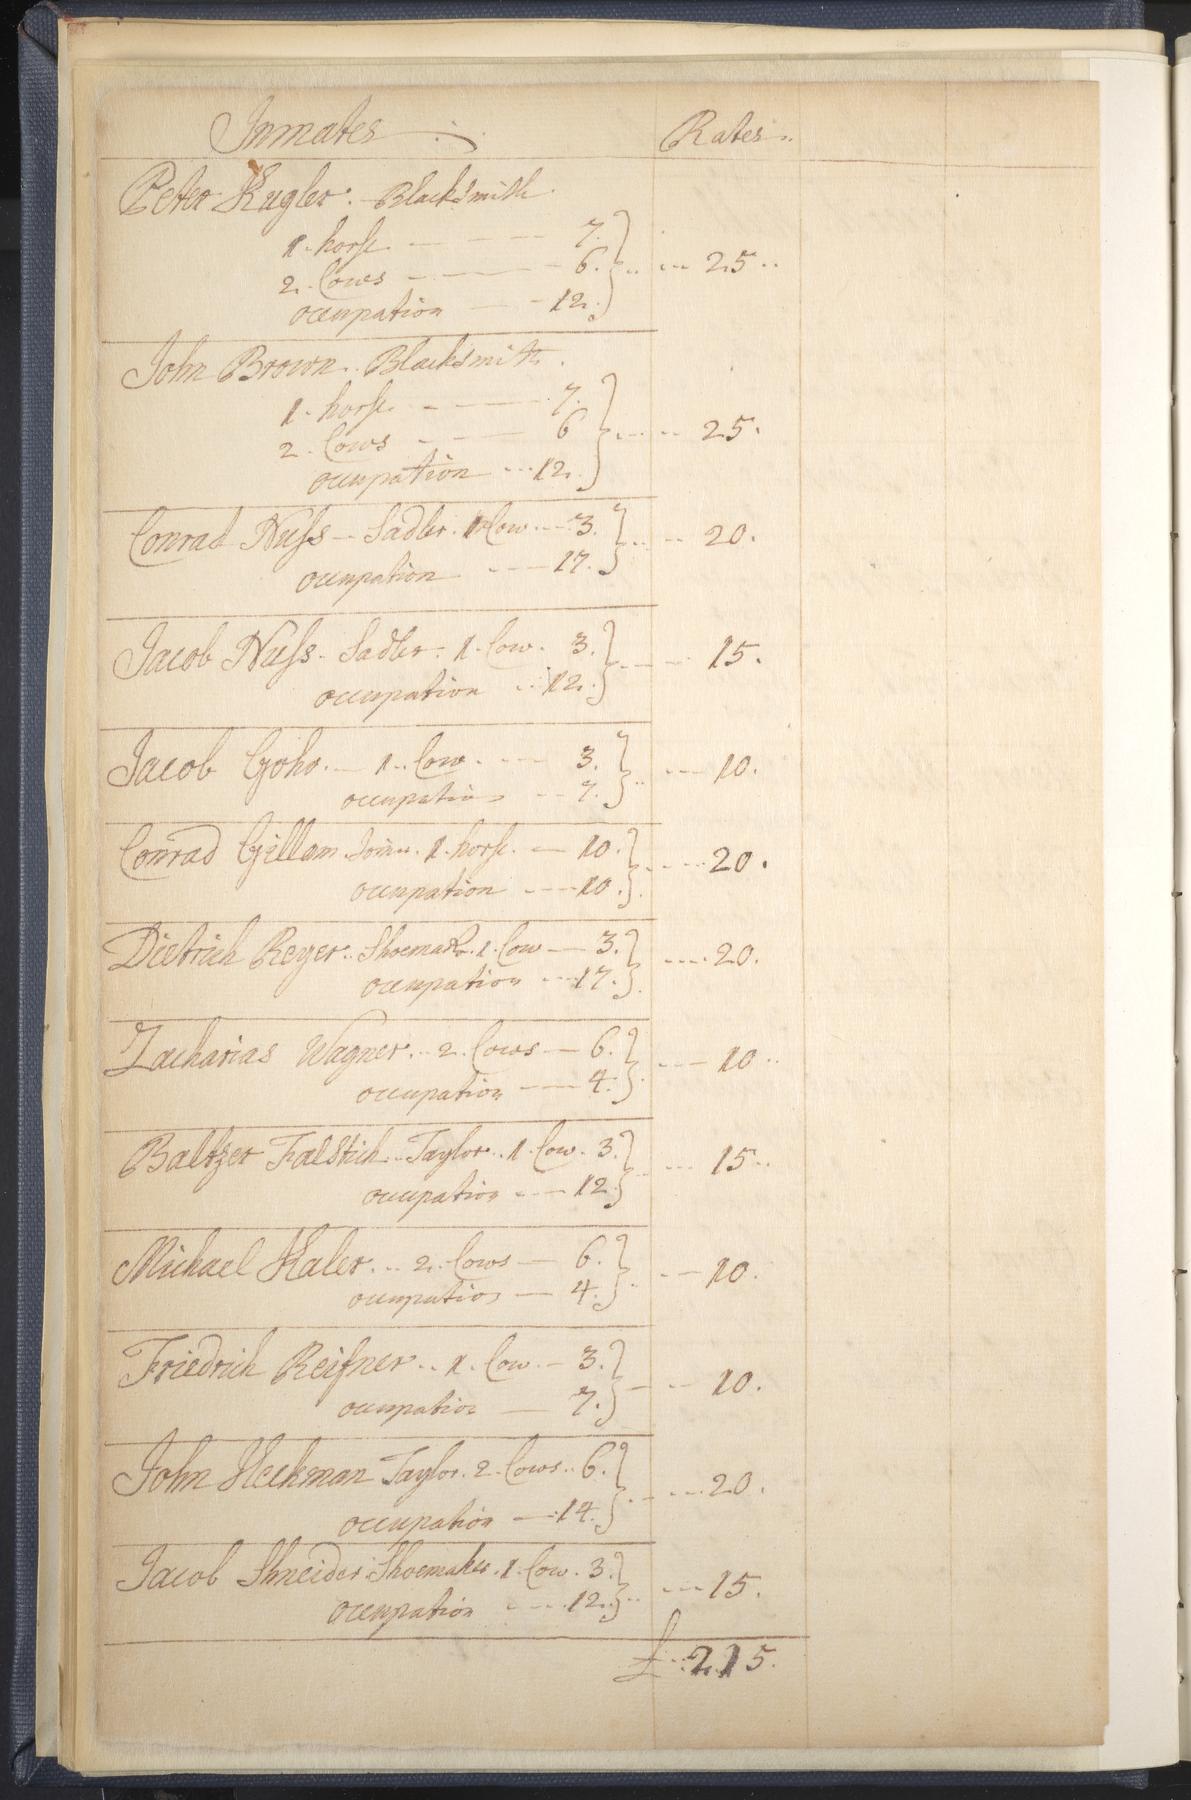 Inmates Rates
Peter Kugler. Blacksmith
1. horse 7.
2. Cows 6. 25
occupation 12.
John Brown. Blacksmith.
1. horse 7.
2. Cows 6 25.
occupation 12.
Conrad Nuss Sadler. 1 Cow 3. 20.
occupation 17.
Jacob Nuss. Sadler. 1. Cow. 3. 15.
occupation 12.
Jacob Goho. 1. Cow. 3. 10.
occupation 7.
Conrad Gillam. 1. horse. 10. 20.
occupation 10.
Dietrich Reyer. Shoemakr. 1. Cow 3. 20.
occupation 17.
Zacharias Wagner. 2. Cows 6. 10
occupation 4.
Baltzer Falstich. Taylor. 1. Cow. 3. 15
occupation 12
Michael Kaler. 2. Cows 6. 10.
occupation 4.
Friedrich Reifner. 1. Cow. 3. 10.
occupation 7.
John Heckman Taylor. 2. Cows. 6. 20.
occupation 14.
Jacob Shneider. Shoemaker. 1. Cow. 3. 15.
occupation 12.
£ 215.